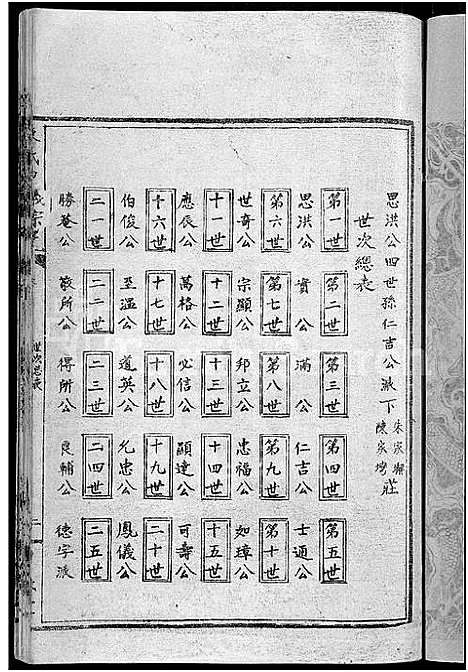 思洪公四世孫仁吉公派下朱家㘭陳家塆莊
世次總表
第一世 第二世 第三世 第四世 第五世
思洪公 賓公 滿公 仁吉公 士通公
第六世 第七世 第八世 第九世 第十世
世奇公 宗顯公 邦立公 忠福公 如璋公
十一世 十二世 十三世 十四世 十五世
應辰公 萬格公 必信公 顯達公 可壽公
十六世 十七世 十八世 十九世 二十世
伯俊公 至溫公 道英公 允忠公 鳳儀公
二一世 二二世 二三世 二四世 二五世
勝菴公 敬所公 得所公 良輔公 德字派
世次總表